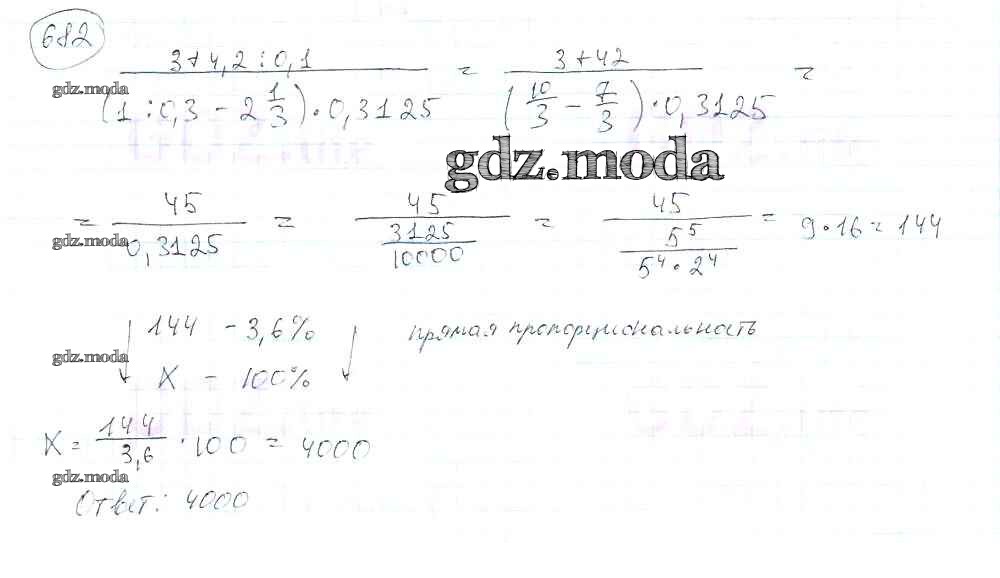 682
3+4,2:0,1 / (1:0,3 - 2 1/3)·0,3125 = 3+42 / (10/3 - 7/3)·0,3125 =
gdz.moda
gdz.moda
= 45 / 0,3125 = 45 / (3125/10000) = 45 / (5^5 / 5^4·2^4) = 9·16 = 144
gdz.moda
↓ 144 - 3,6% ↓ прямая пропорциональность
gdz.moda
X - 100%
X = 144/3,6 · 100 = 4000
gdz.moda
Ответ: 4000